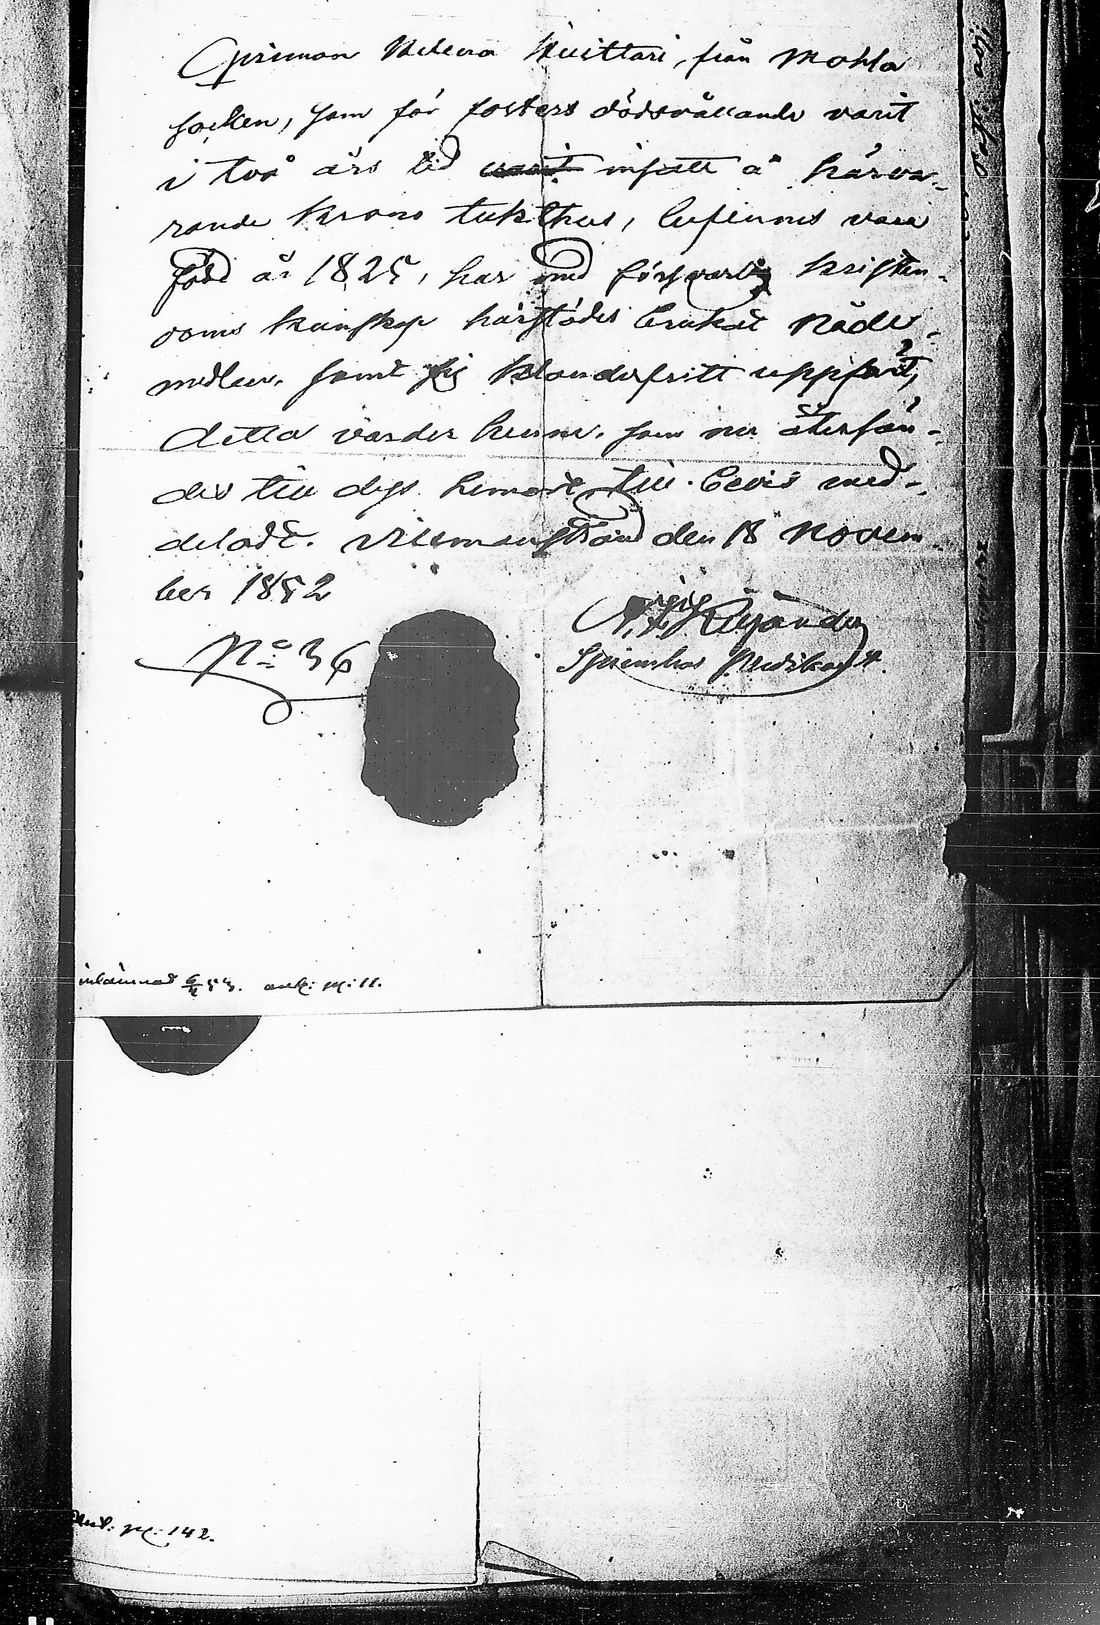 Helena Kuittari, från Mohla
socken, som för fosters dödsvållande varit
i två års tid varit insatt å härva-
rande Krono tukthus, befinnes vara
född år 1825, har med försvarlig kristen-
doms kunskap härstädes brukat Nåde-
medlen, samt sig klanderfritt uppfört,
detta varder henne, som nu återsän-
des till dess hemort, till bevis med-
deladt. Villmanstrand den 18 Novem-
ber 1852
No 36
Spinnhus Predikant.
inlämnad 53. ank: M: 11.
M: 142.